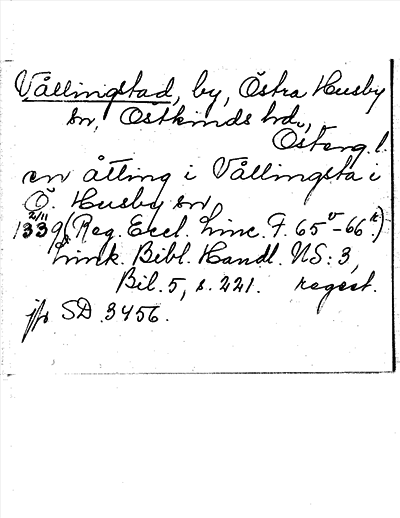 Vållingstad, by, Östra Husby
sn, Östkinds hd.,
Österg. l.
en åtting i Vållingsta i
Ö. Husby sn
2/11
1339 (Reg. Eccl. Linc. F. 65v–66r.)
Link. Bibl. Handl. NS: 3,
Bil. 5, s. 221. regest.
jfr SD 3456.